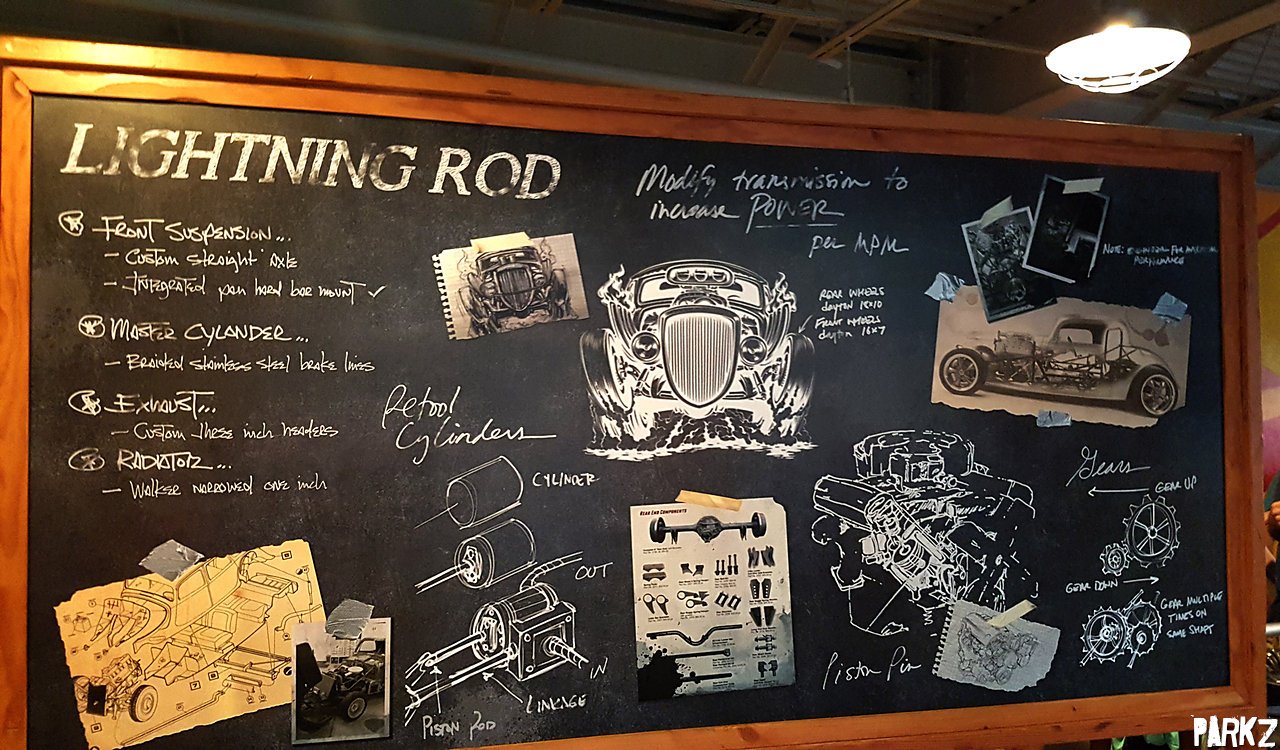 LIGHTNING ROD
FRONT SUSPENSION...
- CUSTOM STRAIGHT AXLE
- INTEGRATED PAN HARD BAR MOUNT ✓
MASTER CYLANDER...
- BRAIDED STAINLESS STEEL BRAKE LINES
EXHAUST...
- CUSTOM THREE INCH HEADERS
RADIATOR...
- WALKER NARROWED ONE INCH
Modify transmission to
increase POWER
per MPM
REAR WHEELS
dayton 18x10
FRONT WHEELS
dayton 16x7
NOTE:
PERFORMANCE
Retool
Cylinders
CYLINDER
OUT
IN
LINKAGE
PISTON ROD
REAR END COMPONENTS
Piston Pin
Gears
GEAR UP
GEAR DOWN
GEAR MULTIPLE
TIMES ON
SAME SHAFT
PARKZ